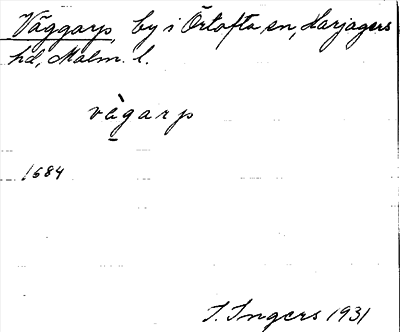 Väggarp, by i Örtofta sn, Harjagers
hd, Malm. l.
vàgarp
1684
I. Ingers 1931